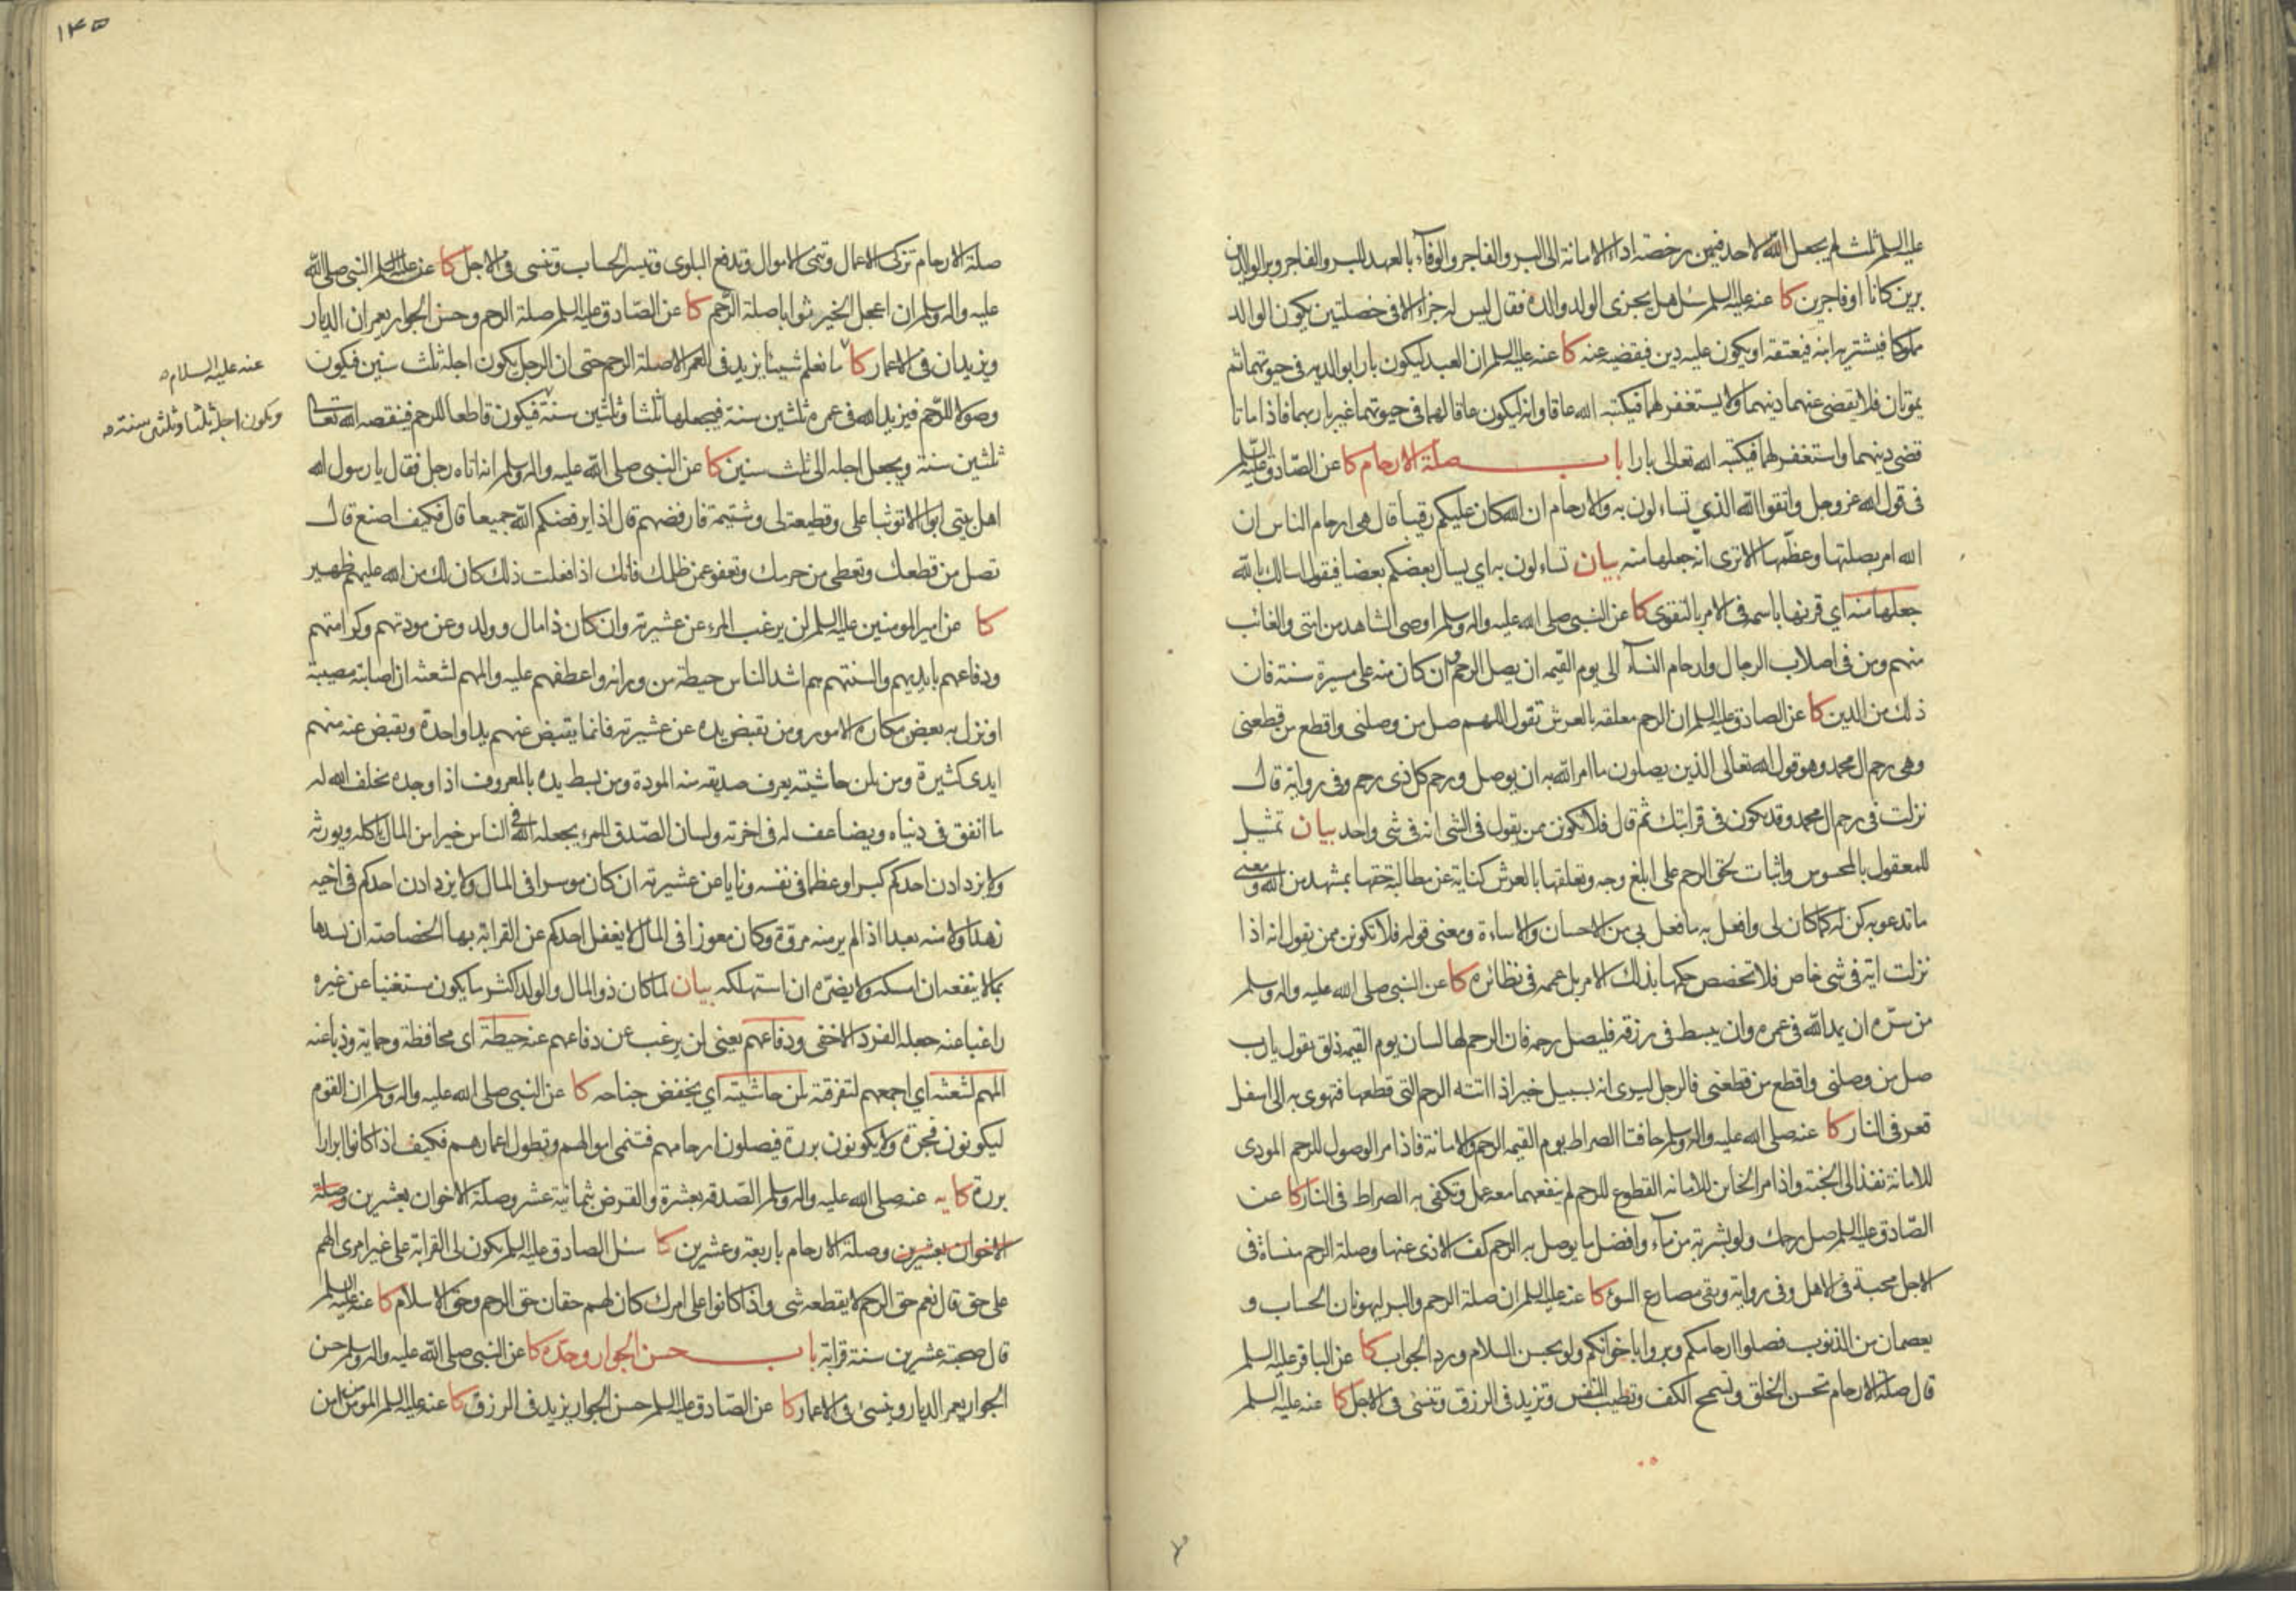 عليه السلم ثلث لم يجعل الله لاحد فيهن رخصة اداء الامانة الى البر والفاجر والوفآء بالعهد للبر والفاجر وبر الوالدين
برين كانا او فاجرين كا عنه عليه السلم سئل هل يجزى الولد والده فقال ليس له جزاء الا في خصلتين يكون الوالد
مملوكا فيشتريه ابنه فيعتقه او يكون عليه دين فيقضيه عنه كا عنه عليه السلم ان العبد ليكون بارا بوالديه في حيوتهما ثم
يموتان فلا يقضى عنهما دينهما ولا يستغفر لهما فيكتبه الله عاقا وانه ليكون عاقا لهما في حيوتهما غير بار بهما فاذا ماتا
قضى دينهما واستغفر لهما فيكتبه الله تعالى بارا باب صلة الارحام كا عن الصادق عليه السلم
في قول الله عز وجل واتقوا الله الذي تساءلون به والارحام ان الله كان عليكم رقيبا قال هي ارحام الناس ان
الله امر بصلتها وعظمها الا ترى انه جعلها منه بيان تساءلون به اي يسال بعضكم بعضا فيقول اسالك بالله
جعلها منه اي قرنها باسمه في الامر بالتقوى كا عن النبي صلى الله عليه واله وسلم اوصى الشاهد من امتى والغائب
منهم ومن في اصلاب الرجال وارحام النسآء الى يوم القيمه ان يصل الرحم وان كان منه على مسيرة سنة فان
ذلك من الدين كا عن الصادق عليه السلم ان الرحم معلقه بالعرش تقول اللهم صل من وصلنى واقطع من قطعنى
وهي رحم ال محمد وهو قول الله تعالى الذين يصلون ما امر الله به ان يوصل ورحم كل ذى رحم وفي رواية قال
نزلت في رحم ال محمد وقد يكون في قرابتك ثم قال فلا تكونن ممن يقول في الشى انه في شى واحد بيان تمثيل
للمعقول بالمحسوس واثبات لحق الرحم على ابلغ وجه وتعلقها بالعرش كناية عن مطالبة حقها بمشهد من الله ومعنى
ما تدعو به كن له كما كان لى وافعل به ما فعل بي من الاحسان والاساءة ومعنى قوله فلا تكونن ممن يقول انه اذا
نزلت اية في شى خاص فلا تخصص حكمها بذلك الامر بل عممه في نظائره كا عن النبي صلى الله عليه واله وسلم
من سره ان يمد الله في عمره وان يبسط في رزقه فليصل رحمه فان الرحم لها لسان يوم القيمه ذلق تقول يا رب
صل من وصلنى واقطع من قطعنى فالرجل ليرى انه بسبيل خير اذا اتته الرحم التى قطعها فتهوى به الى اسفل
قعر في النار كا عنه صلى الله عليه واله وسلم حافتا الصراط يوم القيمه الرحم والامانة فاذا مر الوصول للرحم المودى
للامانة نفذ الى الجنة واذا مر الخاين للامانه القطوع للرحم لم ينفعهما معه عمل وتكفى به الصراط في النار كا عن
الصادق عليه السلم صل رحمك ولو بشربة من مآء وافضل ما يوصل به الرحم كف الاذى عنها وصلة الرحم منساة في
الاجل محببة في الاهل وفي رواية وتقى مصارع السوء كا عنه عليه السلم ان صلة الرحم والبر ليهونان الحساب و
يعصمان من الذنوب فصلوا ارحامكم وبروا باخوانكم ولو بحسن السلام ورد الجواب كا عن الباقر عليه السلم
قال صلة الارحام تحسن الخلق وتسمح الكف وتطيب النفس وتزيد في الرزق وتنسئ في الاجل كا عنه عليه السلم
١٤٥
صلة الارحام تزكى الاعمال وتنمى الاموال وتدفع البلوى وتيسر الحساب وتنسى في الاجل كا عنه عليه السلم النبى صلى الله
عليه واله وسلم ان اعجل الخير ثوابا صلة الرحم كا عن الصادق عليه السلم صلة الرحم وحسن الجوار يعمران الديار
ويزيدان في الاعمار كا ما نعلم شيئا يزيد في العمر الا صلة الرحم حتى ان الرجل يكون اجله ثلث سنين فيكون
عنه عليه السلام
وصولا للرحم فيزيد الله في عمره ثلثين سنة فيجعلها ثلثا وثلثين سنة فيكون قاطعا للرحم فينقصه الله تعالى
ويكون اجله ثلثا وثلثين سنة
ثلثين سنة ويجعل اجله الى ثلث سنين كا عن النبى صلى الله عليه واله وسلم انه اتاه رجل فقال يا رسول الله
اهل بيتى ابوا الا توثبا على وقطيعة لى وشتيمة فارفضهم قال اذا يرفضكم الله جميعا قال فكيف اصنع قال
تصل من قطعك وتعطى من حرمك وتعفو عمن ظلمك فانك اذا فعلت ذلك كان لك من الله عليهم ظهير
كا عن امير المومنين عليه السلم لن يرغب المرء عن عشيرته وان كان ذا مال وولد وعن مودتهم وكرامتهم
ودفاعهم بايديهم والسنتهم هم اشد الناس حيطة من ورائه واعطفهم عليه والمهم لشعثه ان اصابته مصيبة
او نزل به بعض مكاره الامور ومن يقبض يده عن عشيرته فانما يقبض عنهم يدا واحدة وتقبض عنه منهم
ايدى كثيرة ومن يلن حاشيته يعرف صديقه منه المودة ومن بسط يده بالمعروف اذا وجده يخلف الله له
ما انفق في دنياه ويضاعف له في اخرته ولسان الصدق للمرء يجعله الله في الناس خيرا من المال ياكله ويورثه
ولا يزدادن احدكم كبرا وعظما في نفسه ونايا عن عشيرته ان كان موسرا في المال ولا يزدادن احدكم في اخيه
زهدا ولا منه بعدا اذا لم ير منه مروة وكان معوزا في المال لا يغفل احدكم عن القرابة بها الخصاصة ان يسدها
بما لا ينفعه ان امسكه ولا يضره ان استهلكه بيان لما كان ذو المال والولد اكثر ما يكون مستغنيا عن غيره
راغبا عنه جعله الفرد الاخفى ودفاعهم يعنى لن يرغب عن دفاعهم عنه حيطة اى محافظة وحماية وذبا عنه
المهم لشعثه اي اجمعهم لتفرقته يلن حاشيته اي يخفض جناحه كا عن النبى صلى الله عليه واله وسلم ان القوم
ليكونون فجرة ولا يكونون بررة فيصلون ارحامهم فتنمى اموالهم وتطول اعمارهم فكيف اذا كانوا ابرارا
بررة كا يه عنه صلى الله عليه واله وسلم الصدقه بعشرة والقرض بثمانية عشر وصلة الاخوان بعشرين وصلة
الاخوان بعشرين وصلة الارحام باربعة وعشرين كا سئل الصادق عليه السلم يكون لى القرابة على غير امرى الهم
على حق قال نعم حق الرحم لا يقطعه شى واذا كانوا على امرك كان لهم حقان حق الرحم وحق الاسلام كا عنه عليه السلم
قال صحبة عشرين سنة قرابة باب حسن الجوار وحده كا عن النبى صلى الله عليه واله وسلم حسن
الجوار يعمر الديار وينسئ في الاعمار كا عن الصادق عليه السلم حسن الجوار يزيد في الرزق كا عنه عليه السلم المومن من امن